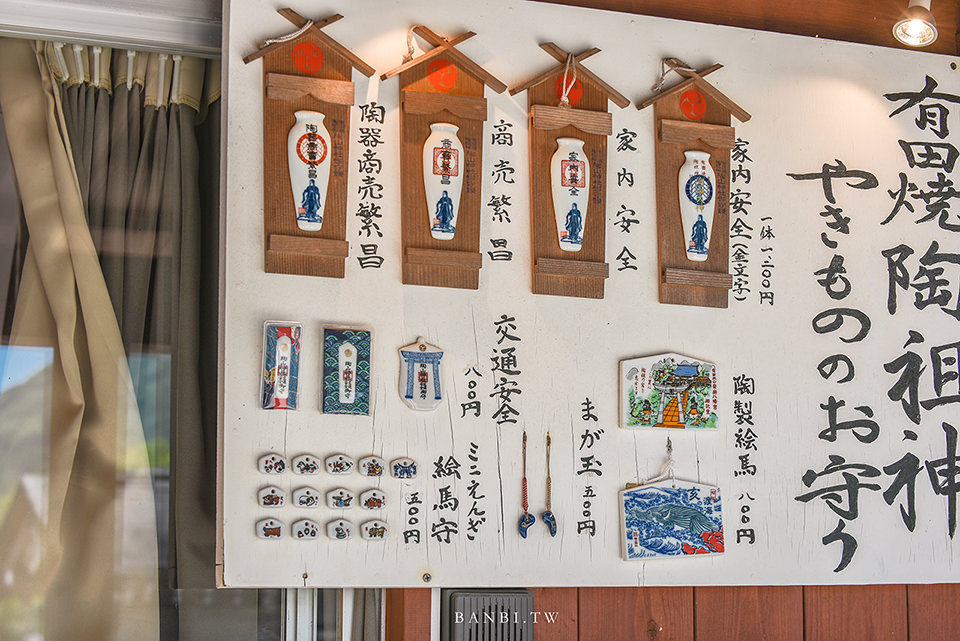 有田焼陶祖神
やきもののお守り
家内安全(金文字)
一体 一、二〇〇円
家内安全
商売繁昌
陶器商売繁昌
陶製絵馬 八〇〇円
まが玉 五〇〇円
交通安全
八〇〇円
ミニえんぎ
絵馬守
五〇〇円
BANBI.TW